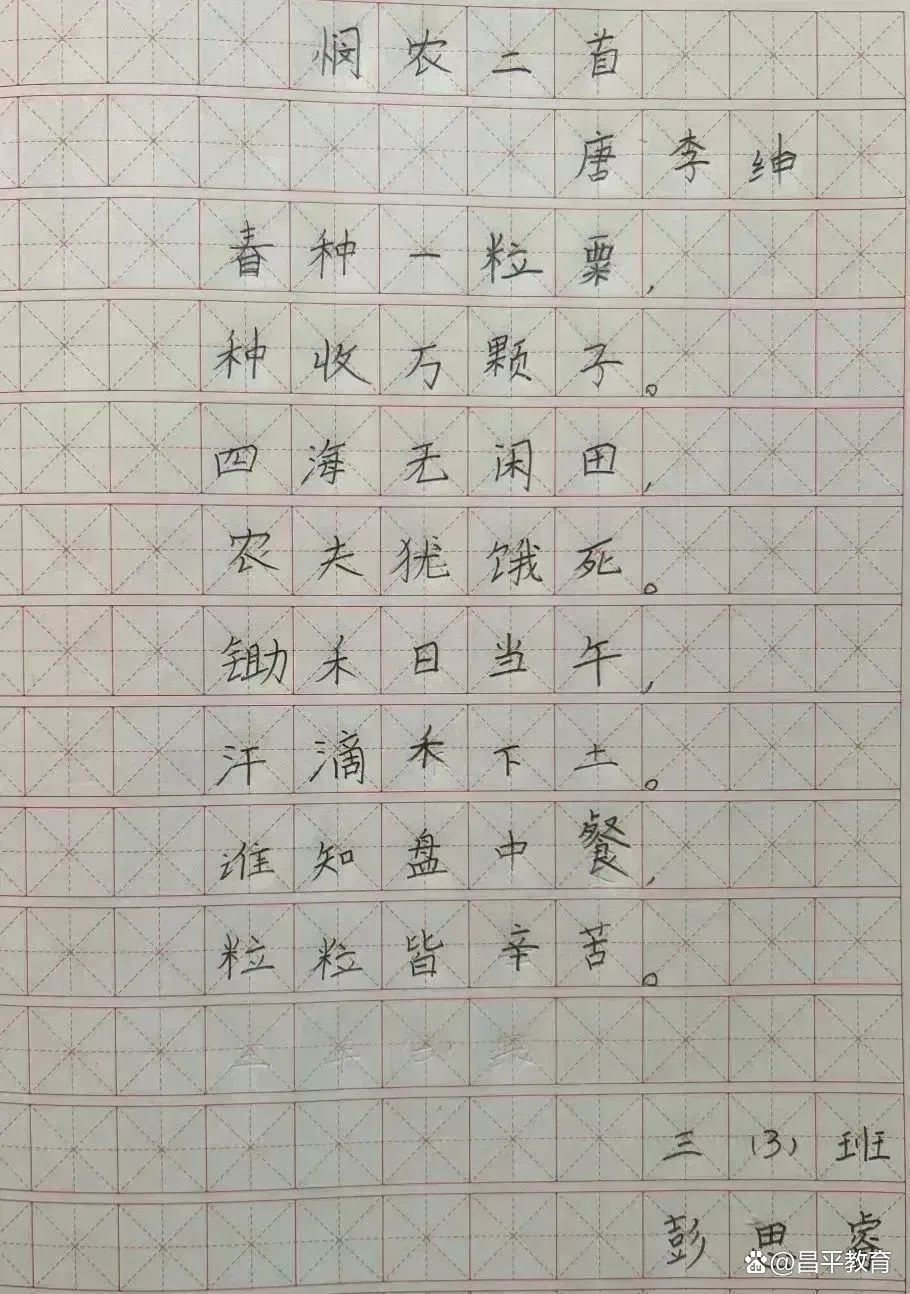 悯农二首
唐李绅
春种一粒粟,
种收万颗子。
四海无闲田,
农夫犹饿死。
锄禾日当午,
汗滴禾下土。
谁知盘中餐,
粒粒皆辛苦。
三(3)班
彭思
@昌平教育